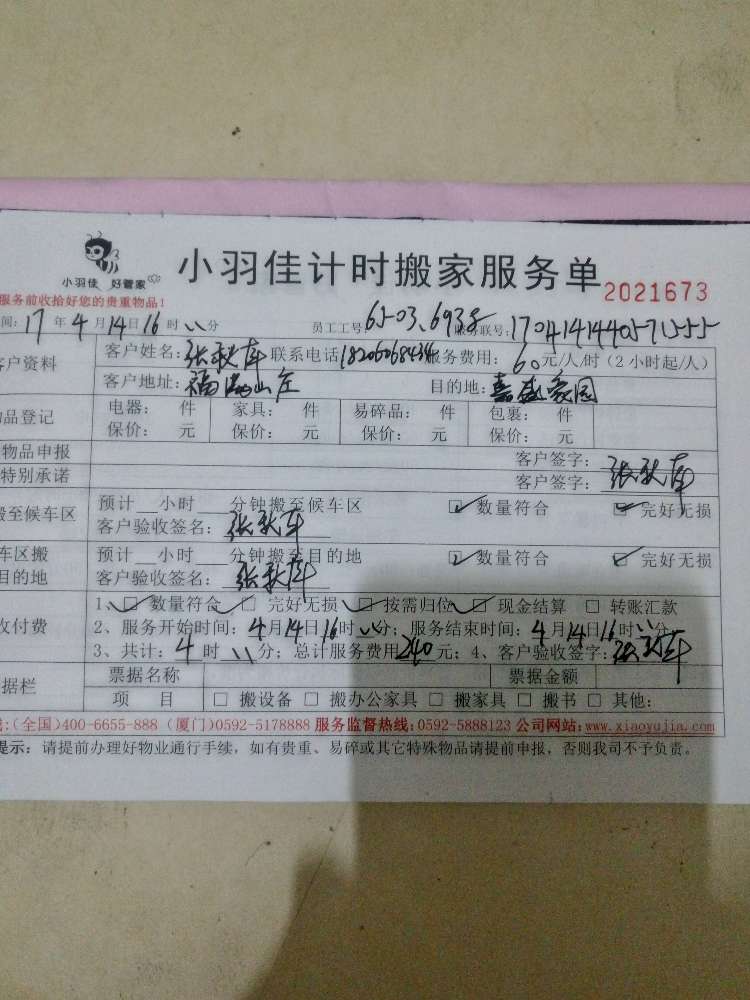 小羽佳 好管家
小羽佳计时搬家服务单 2021673
服务前收拾好您的贵重物品!
间: 17 年 4 月 14 日 16 时 分 员工工号 服务联号:
客户资料 客户姓名: 张秋库 联系电话 服务费用: 60 元/人/时 (2 小时起/人)
客户地址: 福 山庄 目的地: 嘉盛家园
品登记 电器: 件 家具: 件 易碎品: 件 包裹: 件
保价: 元 保价: 元 保价: 元 保价: 元
物品申报 客户签字: 张秋库
特别承诺 客户签字:
搬至候车区 预计__小时__分钟搬至候车区 ☑ 数量符合 ☑ 完好无损
客户验收签名: 张秋库
车区搬 预计__小时__分钟搬至目的地 ☑ 数量符合 ☑ 完好无损
目的地 客户验收签名: 张秋库
1、☑ 数量符合 ☑ 完好无损 ☑ 按需归位 ☑ 现金结算 □ 转账汇款
收付费 2、服务开始时间: 4 月 14 日 时 分; 服务结束时间: 4 月 14 日 16 时 分
3、共计: 4 时 分; 总计服务费用 240 元; 4、客户验收签字: 张秋库
据栏 票据名称 票据金额
项 目 □ 搬设备 □ 搬办公家具 □ 搬家具 □ 搬书 □ 其他:
:(全国)400-6655-888 (厦门)0592-5178888 服务监督热线:0592-5888123 公司网站:www.xiaoyujia.com
提示: 请提前办理好物业通行手续, 如有贵重、易碎或其它特殊物品请提前申报, 否则我司不予负责。